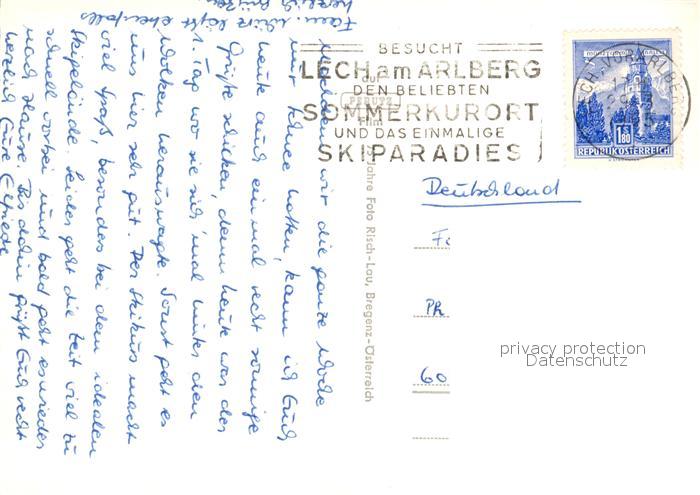 Nachdem wir die ganze Woche
nur Schnee hatten, kann ich Euch
heute auch einmal recht sonnige
Grüße schicken, denn heute war der
1. Tag wo sie sich 'mal hinter den
Wolken herauswagte. Sonst geht es
uns hier sehr gut. Der Skikurs macht
viel Spaß, besonders bei dem idealen
Skigelände. Leider geht die Zeit viel zu
schnell vorbei und bald geht es wieder
nach Hause. Bis dahin grüßt Euch recht
herzlich Eure Elfriede
Fam. läßt ebenfalls
herzlich grüßen
BESUCHT
LECH am ARLBERG
DEN BELIEBTEN
SOMMERKURORT
UND DAS EINMALIGE
SKIPARADIES
auf
PERUTZ
Film
Jahre Foto Risch-Lau, Bregenz-Österreich
LECH, VORARLBERG
S 1.80
REPUBLIK ÖSTERREICH
Deutschland
60
privacy protection
Datenschutz